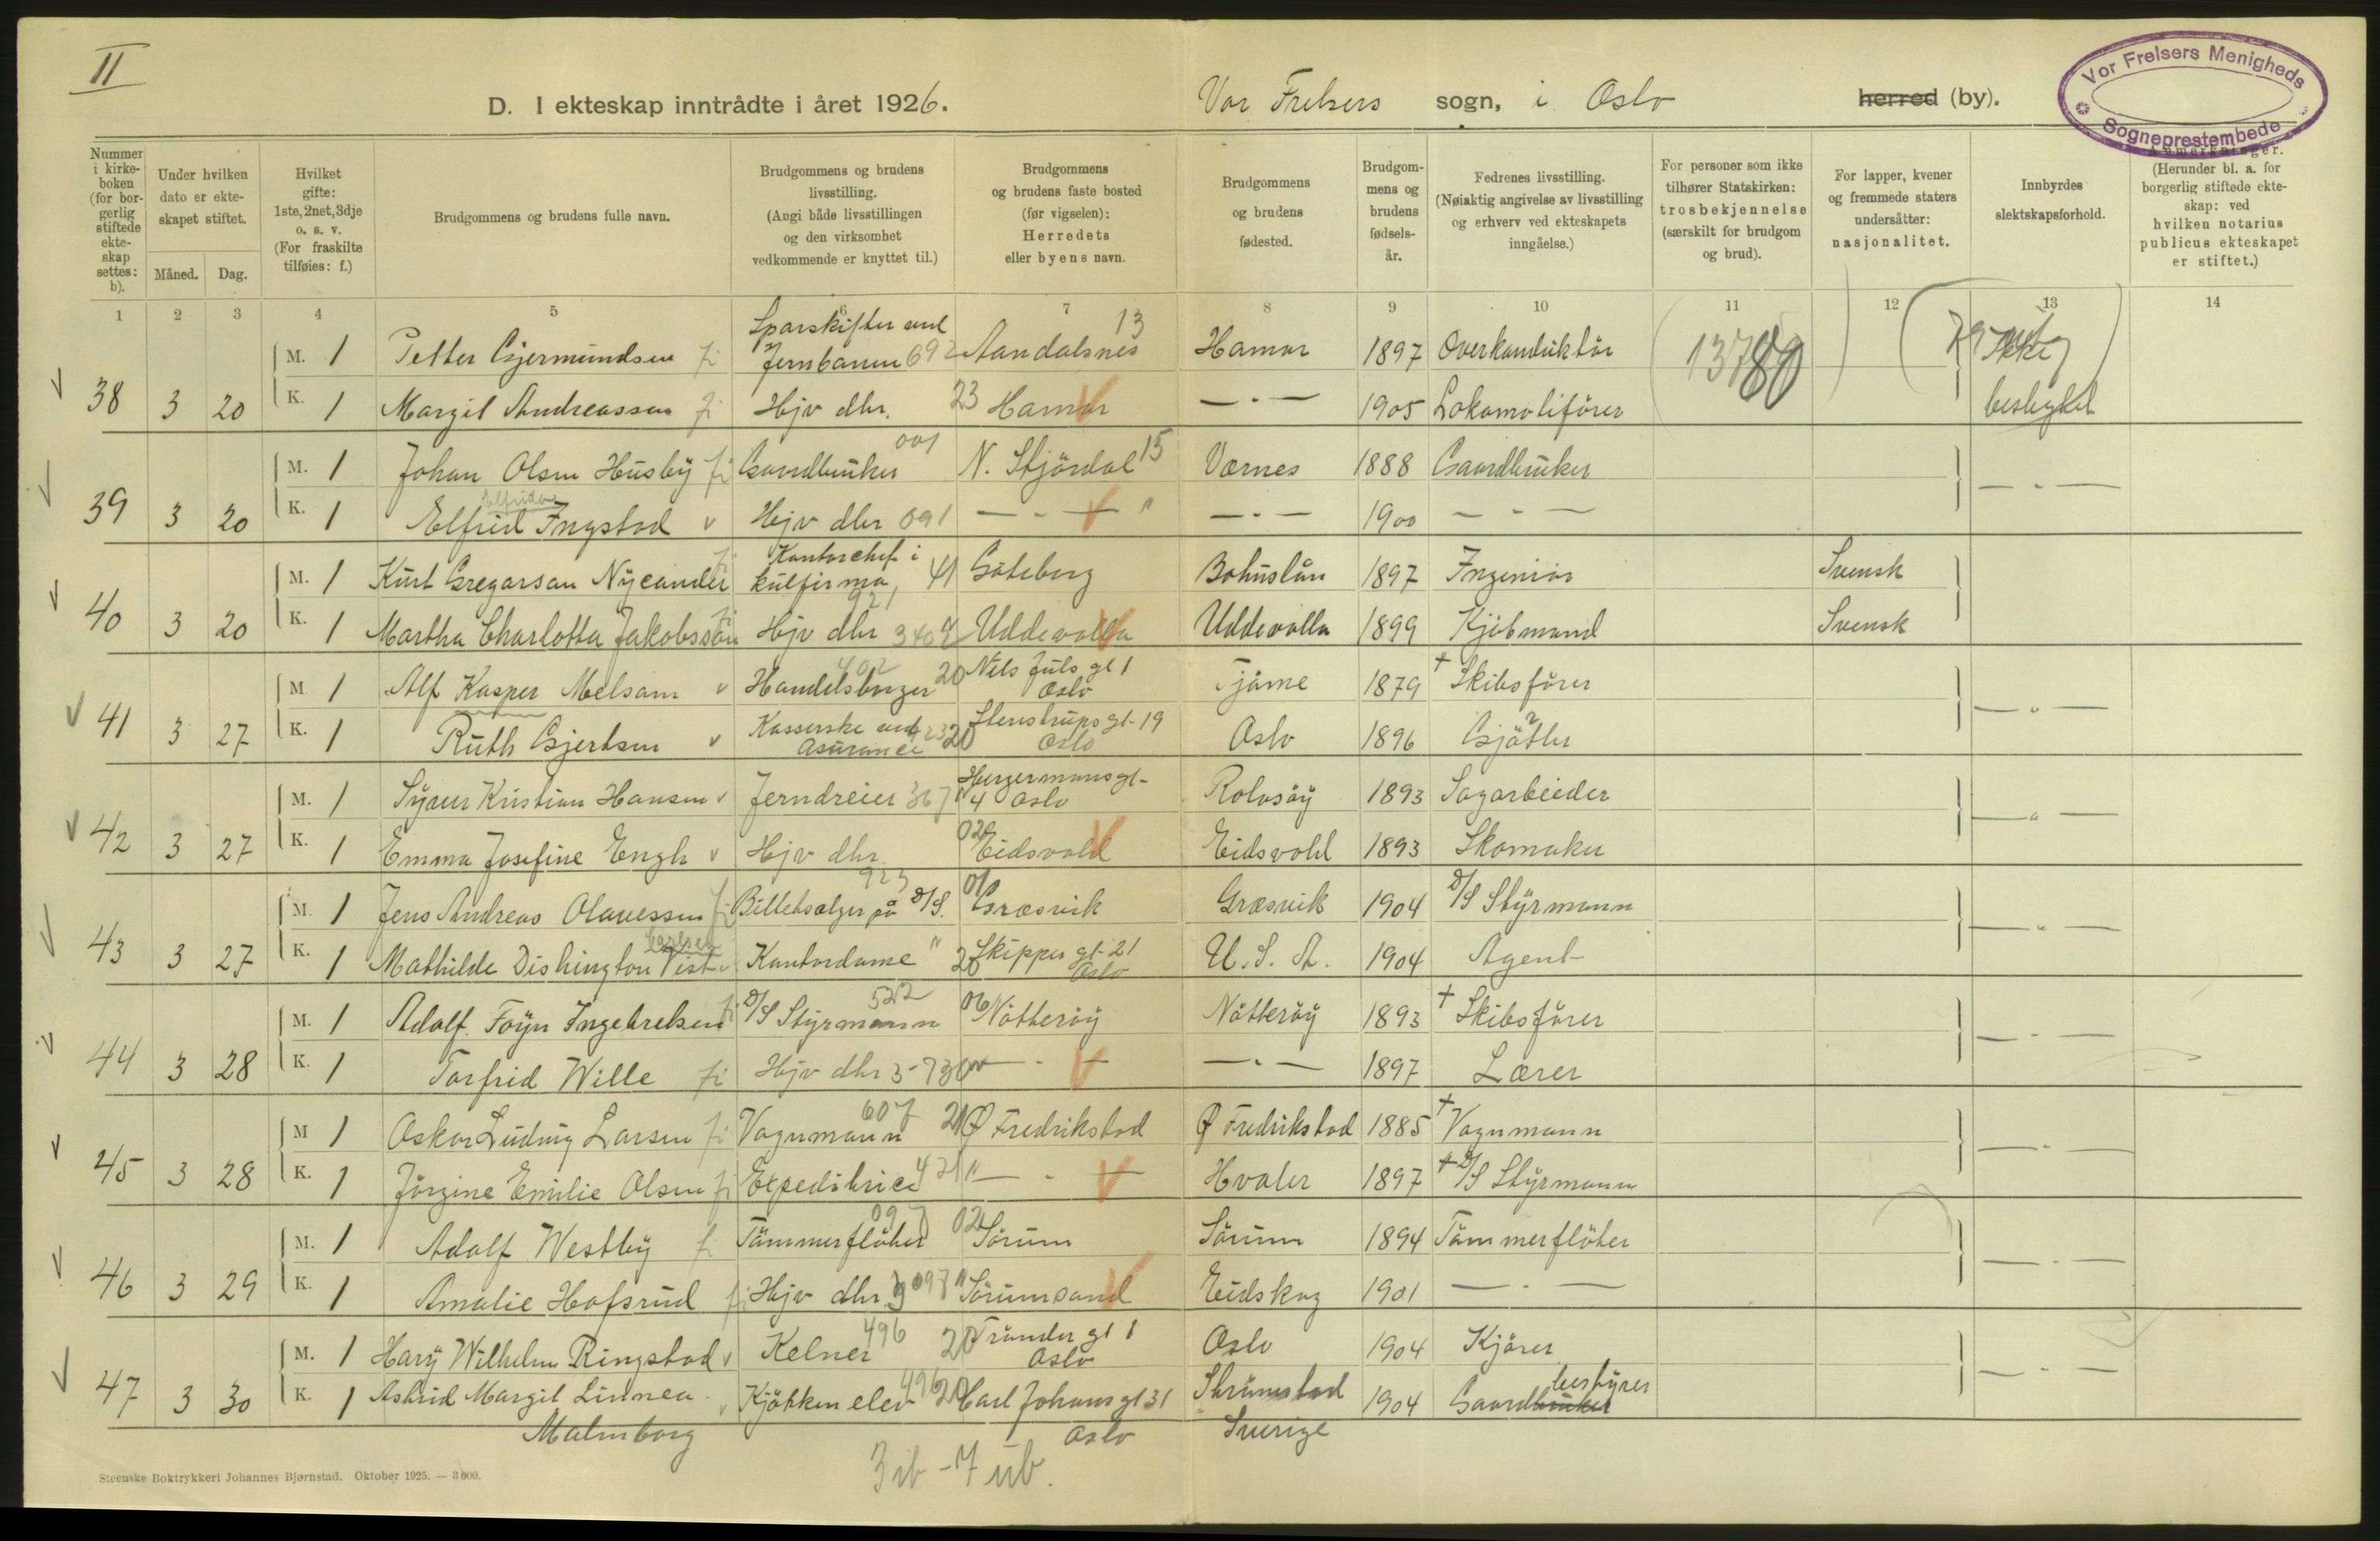 II
D. I ekteskap inntrådte i året 1926.
Vor Frelsers sogn, i Oslo herred (by).
Vor Frelsers Menigheds Sogneprestembede
Nummer i kirkeboken (for borgerlig stiftede ekteskap settes: b).
Under hvilken dato er ekteskapet stiftet.
Måned. Dag.
Hvilket gifte: 1ste, 2net, 3dje o. s. v. (For fraskilte tilføies: f.)
Brudgommens og brudens fulle navn.
Brudgommens og brudens livsstilling. (Angi både livsstillingen og den virksomhet vedkommende er knyttet til.)
Brudgommens og brudens faste bosted (før vigselen): Herredets eller byens navn.
Brudgommens og brudens fødested.
Brudgommens og brudens fødselsår.
Fedrenes livsstilling. (Nøiaktig angivelse av livsstilling og erhverv ved ekteskapets inngåelse.)
For personer som ikke tilhører Statskirken: trosbekjennelse (særskilt for brudgom og brud).
For lapper, kvener og fremmede staters undersåtter: nasjonalitet.
Innbyrdes slektskapsforhold.
Anmerkninger. (Herunder bl. a. for borgerlig stiftede ekteskap: ved hvilken notarius publicus ekteskapet er stiftet.)
1 2 3 4 5 6 7 8 9 10 11 12 13 14
M. 1 Petter Gjermundsen fi Sporskifter ved Jernbanen 692 Aandalsnes 13 Hamar 1897 Overkonduktör 13780 Ikke
38 3 20 K. 1 Margit Andreassen fi Hjv dhr. 23 Hamar — " — 1905 Lokomotiförer beslegtet
M. 1 Johan Olsen Husby fi Gaardbruker 001 N. Stjördal 15 Værnes 1888 Gaardbruker
39 3 20 K. 1 Elfrid Ingstad v Hjv dhr 091 — " — — " — 1900 — " — — " —
M. 1 Kurt Gregorsan Nycander fi Kontorchef i kulfirma, 41 Göteborg Bohuslän 1897 Ingeniør Svensk
40 3 20 K. 1 Martha Charlotta Jakobsson fi Hjv dhr Uddevalla Uddevalla 1899 Kjöbmand Svensk
M. 1 Alf Kasper Melsom v Handelsborger 402 20 Nils Juls gt 1 Oslo Tjöme 1879 + Skibsförer
41 3 27 K. 1 Ruth Gjertsen v Kasserske ved Asurance 20 Stenstrups gt. 19 Oslo Oslo 1896 Gjörtler — " —
M. 1 Syver Kristian Hansen v Jerndreier 367 Hergermans gt- 4 Oslo Rolvsöy 1893 Sagarbeider
42 3 27 K. 1 Emma Josefine Engh v Hjv dhr. 02 Eidsvold Eidsvold 1893 Skomaker — " —
M. 1 Jens Andreas Olavessen fi Billetsælger på D/S. 923 01 Græsvik Græsvik 1904 D/S Styrmann
43 3 27 K. 1 Mathilde Dishington Vist Kontordame " 20 Skipper gt. 21 Oslo U. S. A. 1904 Agent — " —
M. 1 Adolf Foyn Ingebretsen fi D/S Styrmann 522 06 Nötteröy Nötteröy 1893 + Skibsförer
44 3 28 K. 1 Torfrid Wille fi Hjv dhr — " — — " — 1897 Lærer — " —
M 1 Oskar Ludvig Larsen fi Vognmann 607 21 Ø Fredrikstad Ø Fredrikstad 1885 + Vognmann
45 3 28 K. 1 Jörgine Emilie Olsen fi Expeditrice 421 — " — Hvaler 1897 + D/S Styrmann — " —
M. 1 Adolf Westby f Tömmerflöter 097 02 Sörum Sörum 1894 Tömmerflöter
46 3 29 K. 1 Amalie Hofsrud fi Hjv dhr. Sörumsand Eidskog 1901 — " — — " —
M. 1 Hary Wilhelm Ringstad v Kelner 496 20 Trönder gt 1 Oslo Oslo 1904 Kjörer
47 3 30 K. 1 Astrid Margit Linnea Malmborg v Kjökken elev 496 20 Carl Johans gt 31 Oslo Strömstad Sverige 1904 Gaardbruker bestyrer — " —
3 ib - 7 ub.
Steenske Boktrykkeri Johannes Bjørnstad. Oktober 1925. — 3000.